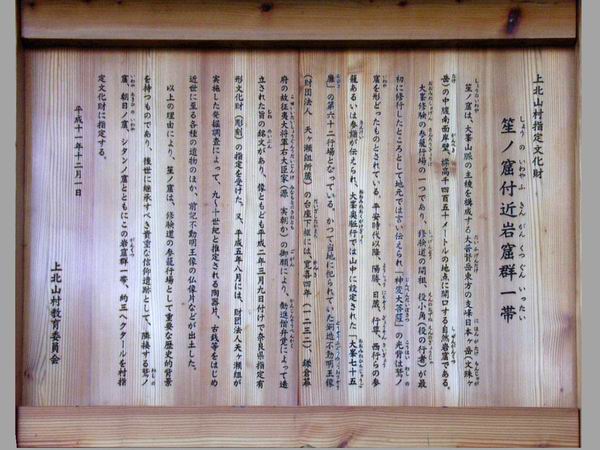 上北山村指定文化財
笙ノ窟付近岩窟群一帯
しょう の いわや ふ きん がん くつ ぐん いったい
笙ノ窟は、大峯山脈の主稜を構成する大普賢岳東方の支峰日本ヶ岳(文殊ヶ
岳)の中腹南面岸壁、標高千四百五十メートルの地点に開口する自然岩窟である。
大峯修験の参籠行場の一つであり、修験道の開祖、役小角(役の行者)が最
初に修行したところとして地元では言い伝えられ「神変大菩薩」の光背は鷲ノ
窟を形どったものとされている。平安時代以降、陽勝、日蔵、行尊、西行らの参
籠あるいは参詣が伝えられ、大峯奥駈行では山中に設定された「大峯七十五
靡」の第六十二行場となっている。かつて当地に祀られていた銅造不動明王像
(財団法人 天ヶ瀬組所蔵)の台座下框には、寛喜四年(一二三二)鎌倉幕
府の征夷大将軍右大臣家(源 実朝か)の御願により、勧進僧弁覚によって造
立された旨の銘文があり、像ともども平成二年三月九日付けで奈良県指定有
形文化財(彫刻)の指定を受けた。又、平成五年八月には、財団法人天ヶ瀬組が
実施した発掘調査によって、九〜十世紀と推定される陶器片、古銭等をはじめ
近世に至る各種の遺物のほか、前記不動明王像の仏像片などが出土した。
以上の理由により、笙ノ窟は、修験道の参籠行場として重要な歴史的背景
を持つものであり、後世に継承すべき貴重な信仰遺跡として、隣接する鷲ノ
窟、朝日ノ窟、シタンノ窟とともにこの岩窟群一帯、約三ヘクタールを村指
定文化財に指定する。
平成十一年十二月一日
上北山村教育委員会